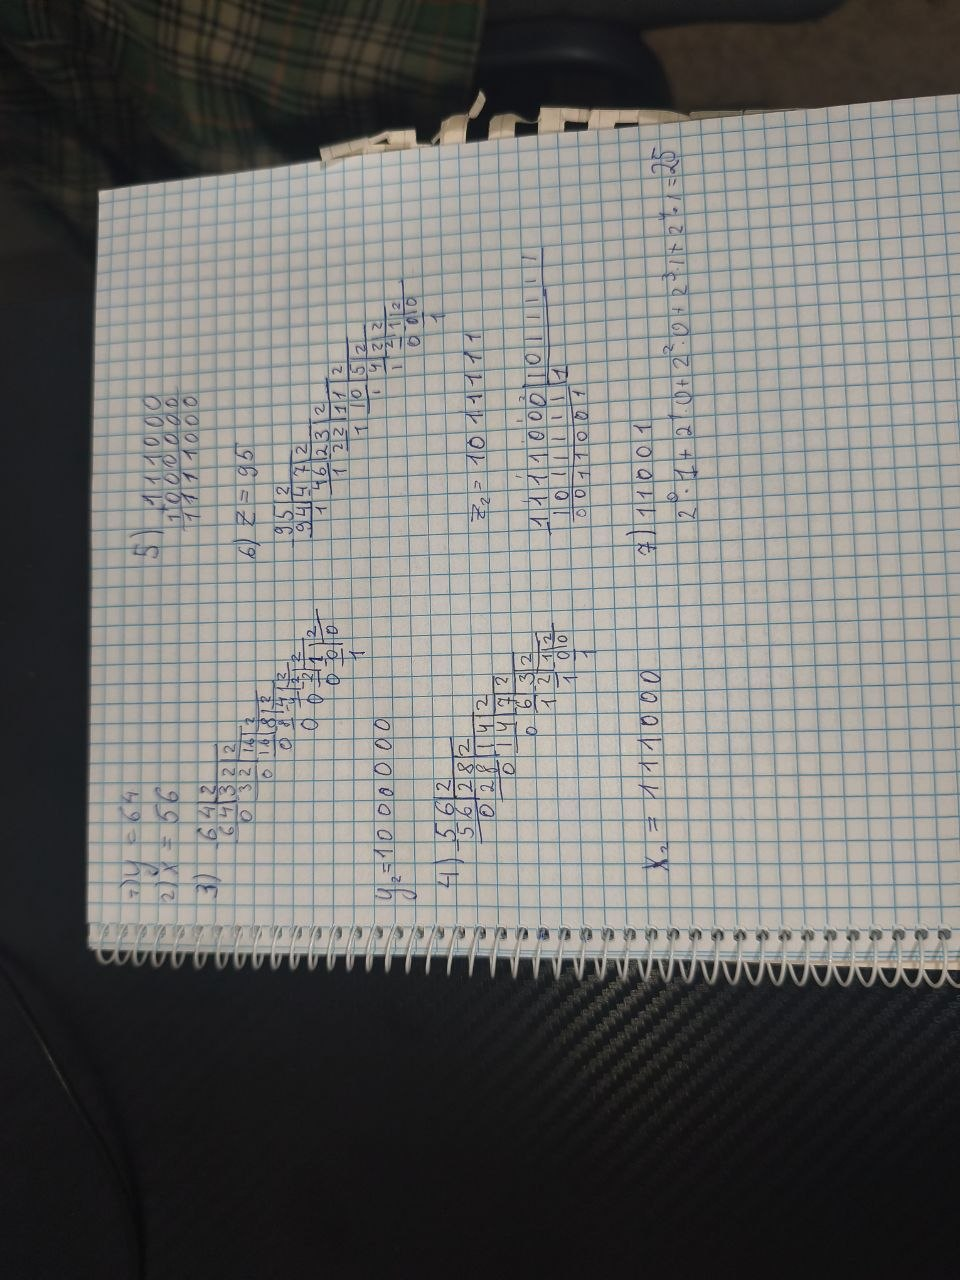 1) y = 64
2) x = 56
3) 64 | 2
64 | 32 | 2
0 32 | 16 | 2
0 16 | 8 | 2
0 8 | 4 | 2
0 4 | 2 | 2
0 2 | 1 | 2
0 0 | 0
1
y₂ = 1000000
4) 56 | 2
56 | 28 | 2
0 28 | 14 | 2
0 14 | 7 | 2
0 6 | 3 | 2
1 2 | 1 | 2
1 0 | 0
1
x₂ = 111000
5) 111000
1000000
1111000
6) z = 95
95 | 2
94 | 47 | 2
1 46 | 23 | 2
1 22 | 11 | 2
1 10 | 5 | 2
1 4 | 2 | 2
1 2 | 1 | 2
0 0 | 0
1
z₂ = 1011111
1111000 | 1011111
1011111 | 1
0011001
7) 11001
2⁰·1 + 2¹·0 + 2²·0 + 2³·1 + 2⁴·1 = 25